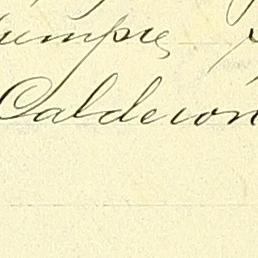 siempre
Calderón